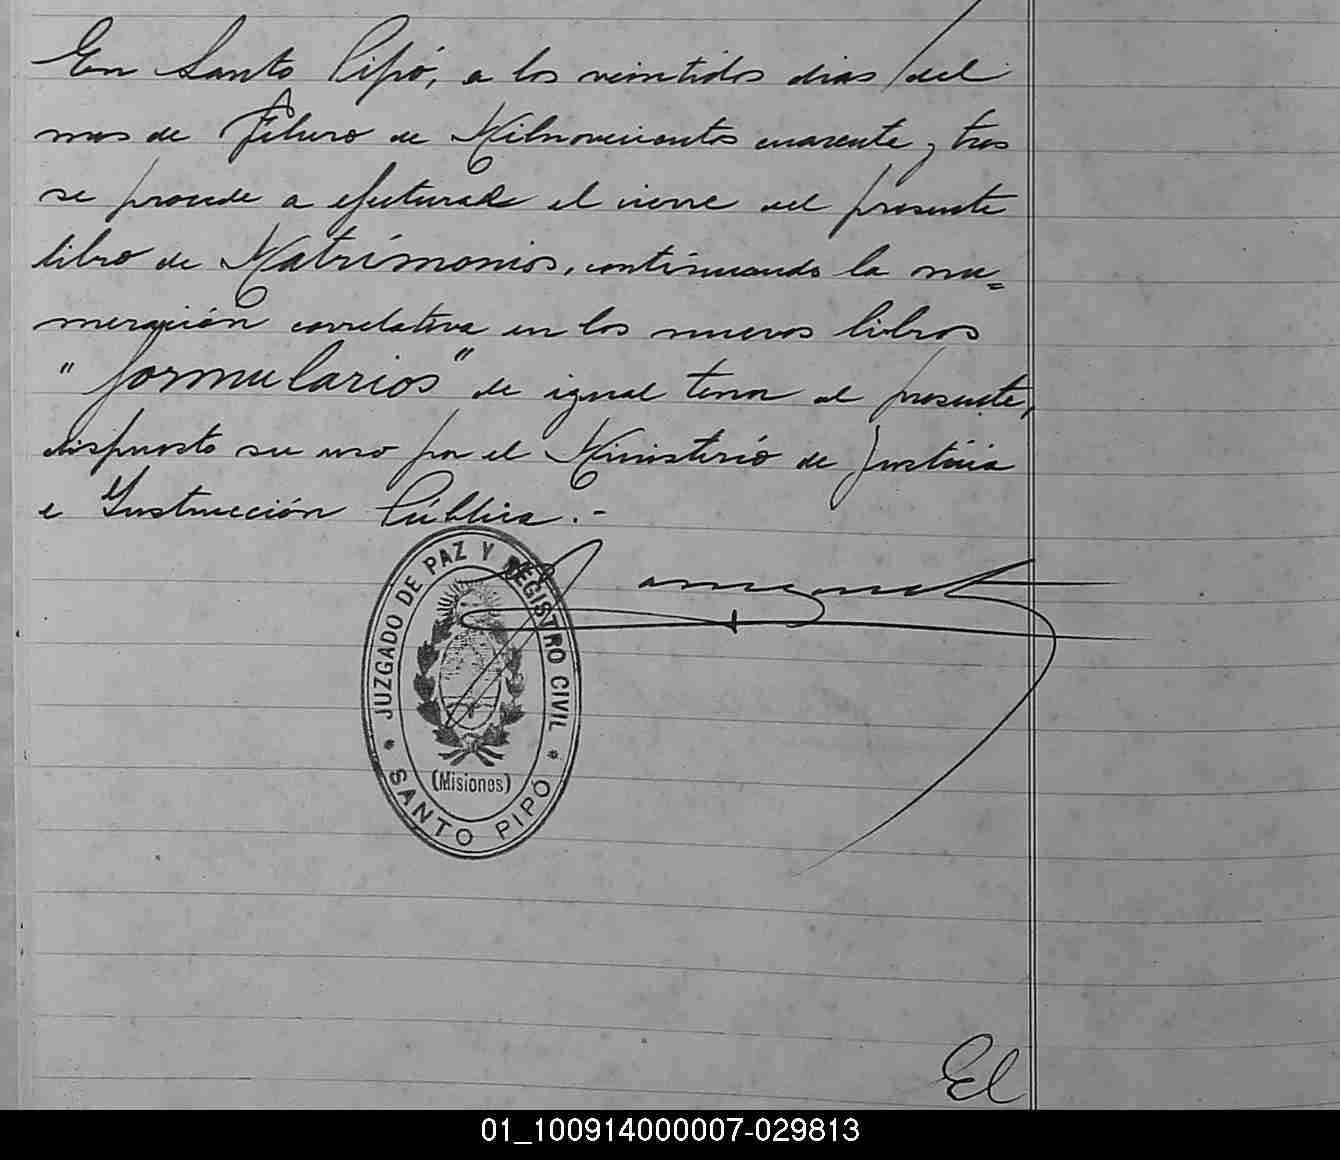 En Santo Pipó, a los veintidos dias del
mes de Febrero de Milnovecientos cuarenta y tres
se procede a efectuar el cierre del presente
libro de Matrimonios, continuando la nu=
meración correlativa en los nuevos libros
"formularios" de igual tenor al presente,
dispuesto su uso por el Ministerio de Justicia
e Instrucción Pública.-
JUZGADO DE PAZ Y REGISTRO CIVIL
(Misiones)
* SANTO PIPÓ *
El
01_100914000007-029813